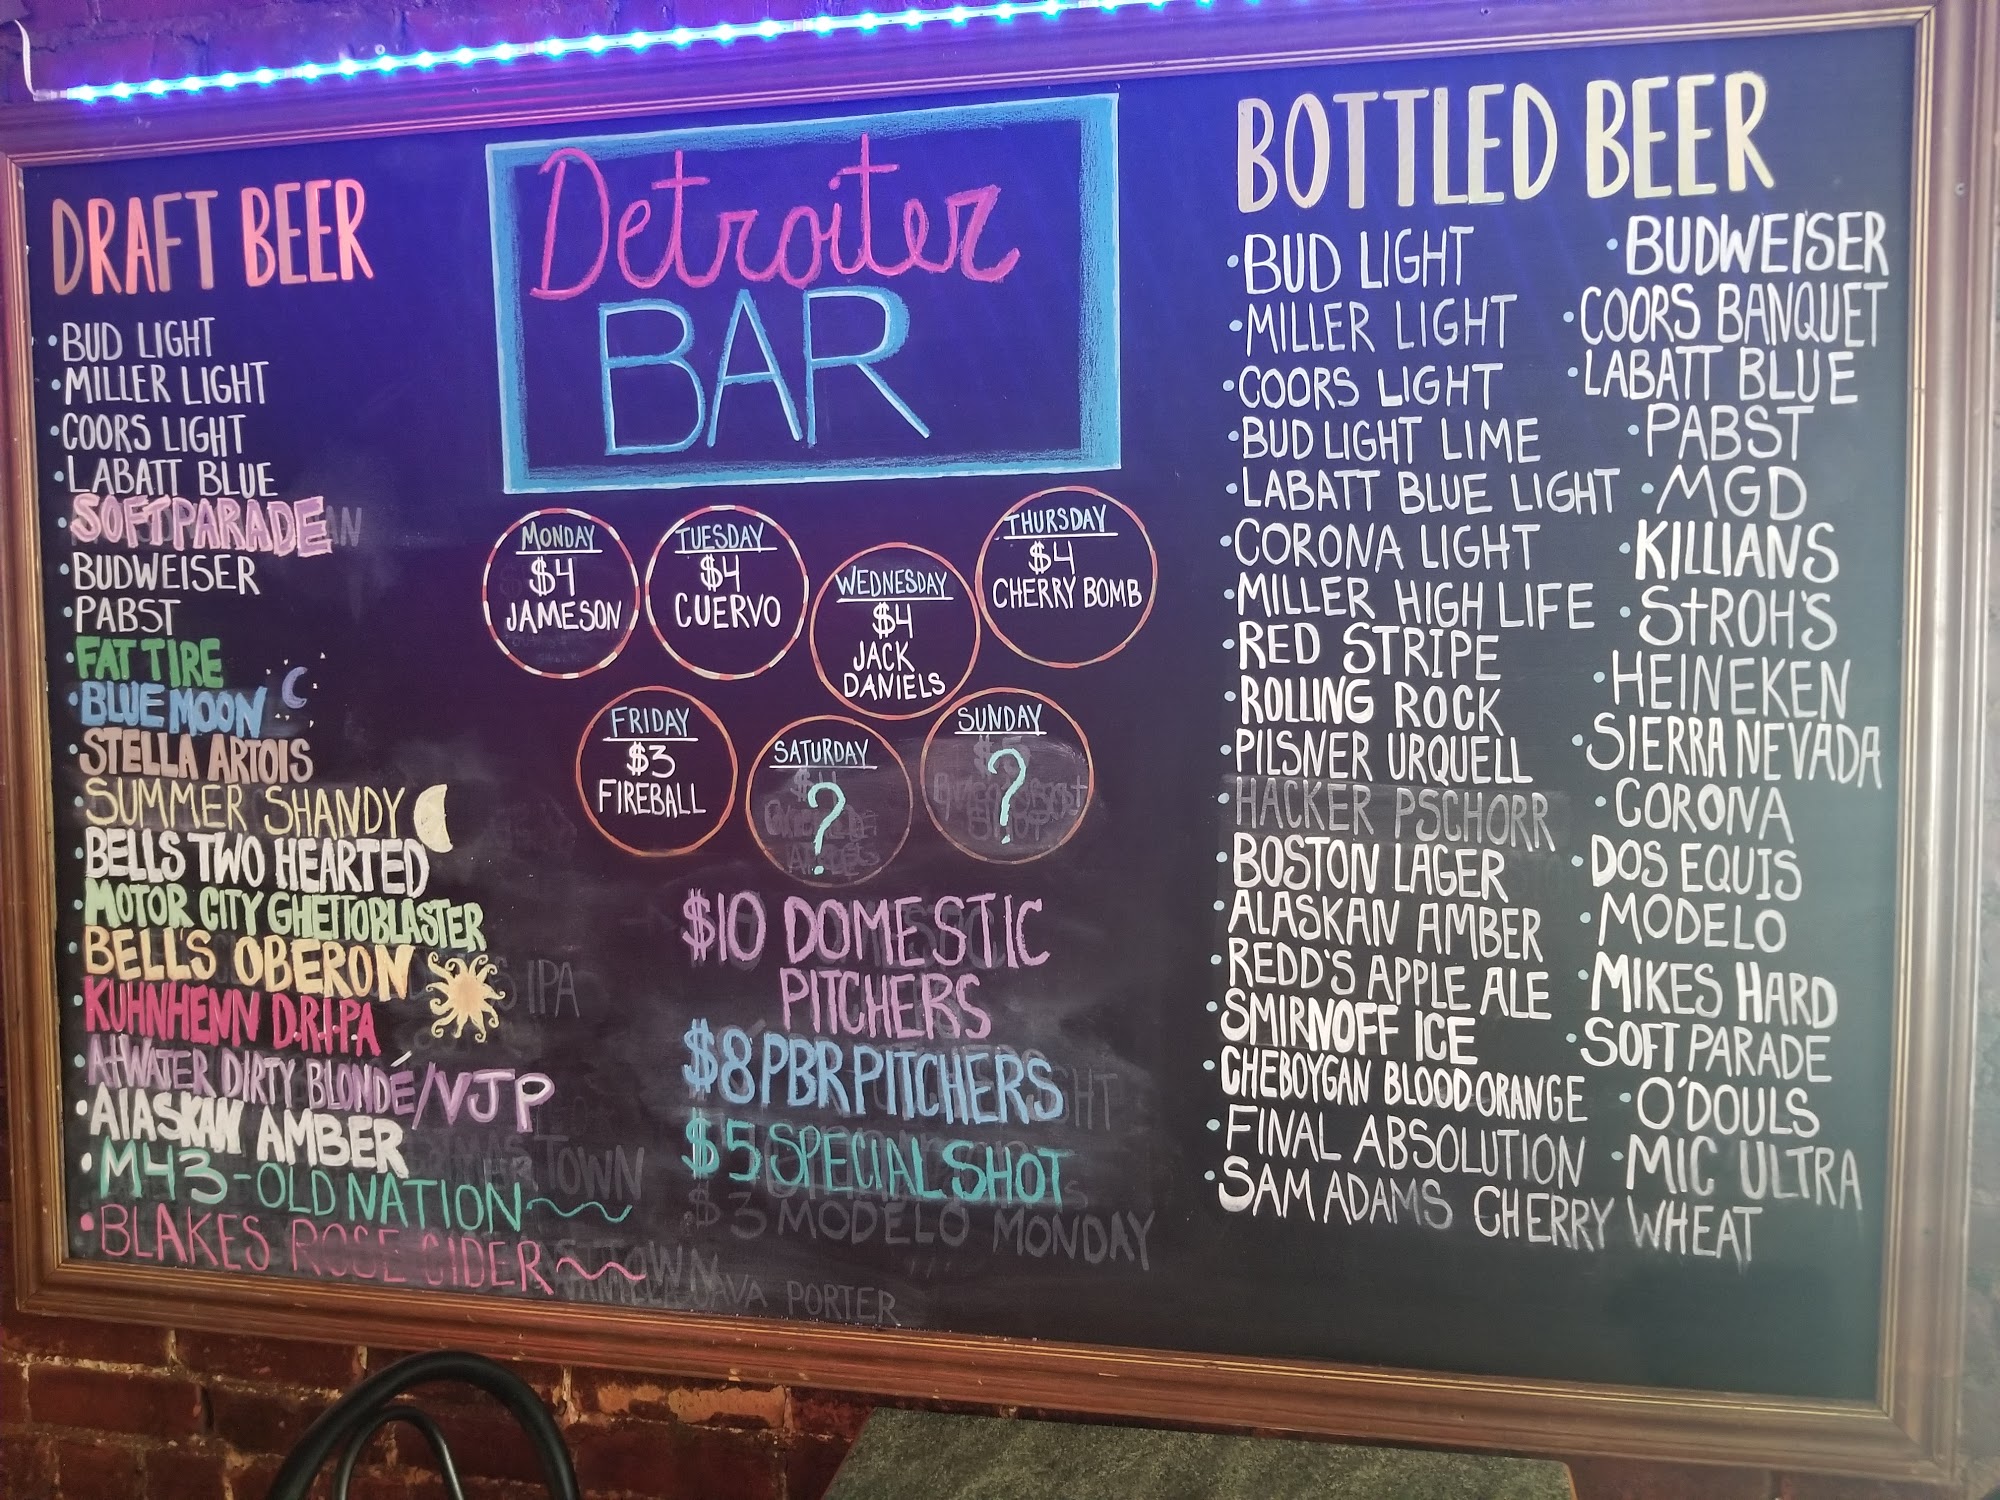 DRAFT BEER
• BUD LIGHT
• MILLER LIGHT
• COORS LIGHT
• LABATT BLUE
• SOFTPARADE
• BUDWEISER
• PABST
• FAT TIRE
• BLUE MOON
• STELLA ARTOIS
• SUMMER SHANDY
• BELLS TWO HEARTED
• MOTOR CITY GHETTOBLASTER
• BELL'S OBERON
IPA
• KUHNHENN D.R.I.P.A
• ATWATER DIRTY BLONDÉ/VJP
• ALASKAN AMBER
TOWN
• M43-OLD NATION
• BLAKES ROSE CIDER
JAVA PORTER
Detroiter
BAR
MONDAY
$4
JAMESON
TUESDAY
$4
CUERVO
WEDNESDAY
$4
JACK
DANIELS
THURSDAY
$4
CHERRY BOMB
FRIDAY
$3
FIREBALL
SATURDAY
?
SUNDAY
?
$10 DOMESTIC
PITCHERS
$8 PBR PITCHERS
$5 SPECIAL SHOT
$3 MODELO MONDAY
BOTTLED BEER
• BUD LIGHT
• MILLER LIGHT
• COORS LIGHT
• BUD LIGHT LIME
• LABATT BLUE LIGHT
• CORONA LIGHT
• MILLER HIGH LIFE
• RED STRIPE
• ROLLING ROCK
• PILSNER URQUELL
• HACKER PSCHORR
• BOSTON LAGER
• ALASKAN AMBER
• REDD'S APPLE ALE
• SMIRNOFF ICE
• CHEBOYGAN BLOOD ORANGE
• FINAL ABSOLUTION
• SAM ADAMS CHERRY WHEAT
• BUDWEISER
• COORS BANQUET
• LABATT BLUE
• PABST
• MGD
• KILLIANS
• StROH'S
• HEINEKEN
• SIERRA NEVADA
• CORONA
• DOS EQUIS
• MODELO
• MIKES HARD
• SOFT PARADE
• O'DOULS
• MIC ULTRA